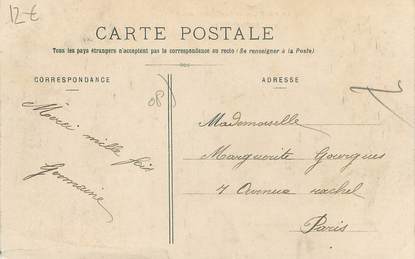 12 €
CARTE POSTALE
Tous les pays étrangers n'acceptent pas la correspondance au recto (Se renseigner à la Poste)
CORRESPONDANCE
ADRESSE
(08)
Merci mille fois
Germaine
Mademoiselle
Marguerite Gourgues
7 Avenue rachel
Paris